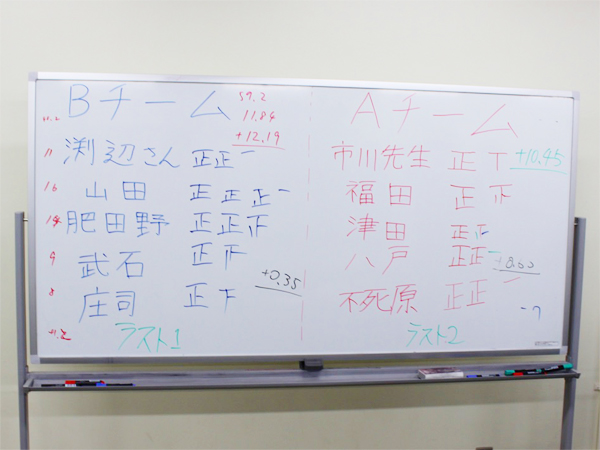 Bチーム
59.2
11.84
+12.19
11 渕辺さん 正正一
16 山田 正正正一
14 肥田野 正正正
9 武石 正下
+0.35
8 庄司 正下
ラスト1
Aチーム
市川先生 正丅 +10.45
福田 正正
津田 正正
八戸 正正一
不死原 正正一
ラスト2